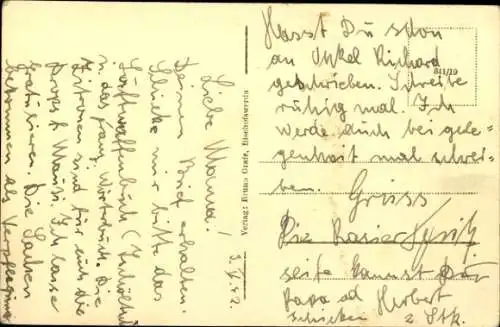 3.V.42.
Liebe Mama!
Deinen Brief erhalten.
Schicke mir bitte das
Luftwaffenbuch (
u. das franz. Wörterbuch. Die
Zitronen sind für euch die
Propst Mausi. Ich lasse
gratulieren. Die Sachen
bekommen als Verpflegung
Verlag: Bruno Grafe, Bischofswerda
841/19
Hasst Du schon
an Onkel Richard
geschrieben. Schreibe
ruhig mal. Ich
werde auch bei gele-
genheit mal schrei-
ben. Gruss
Fritz
Die Rasier
seife kannst Du
Papa od Herbert
schicken 2 Stk.